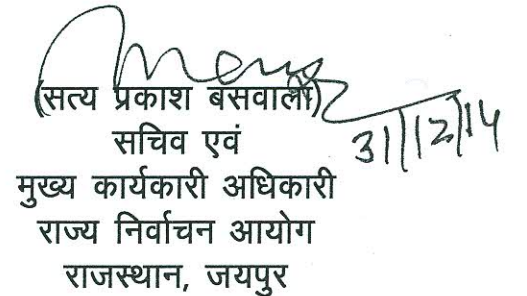 (सत्य प्रकाश बसवाला)
सचिव एवं
31/12/14
मुख्य कार्यकारी अधिकारी
राज्य निर्वाचन आयोग
राजस्थान, जयपुर